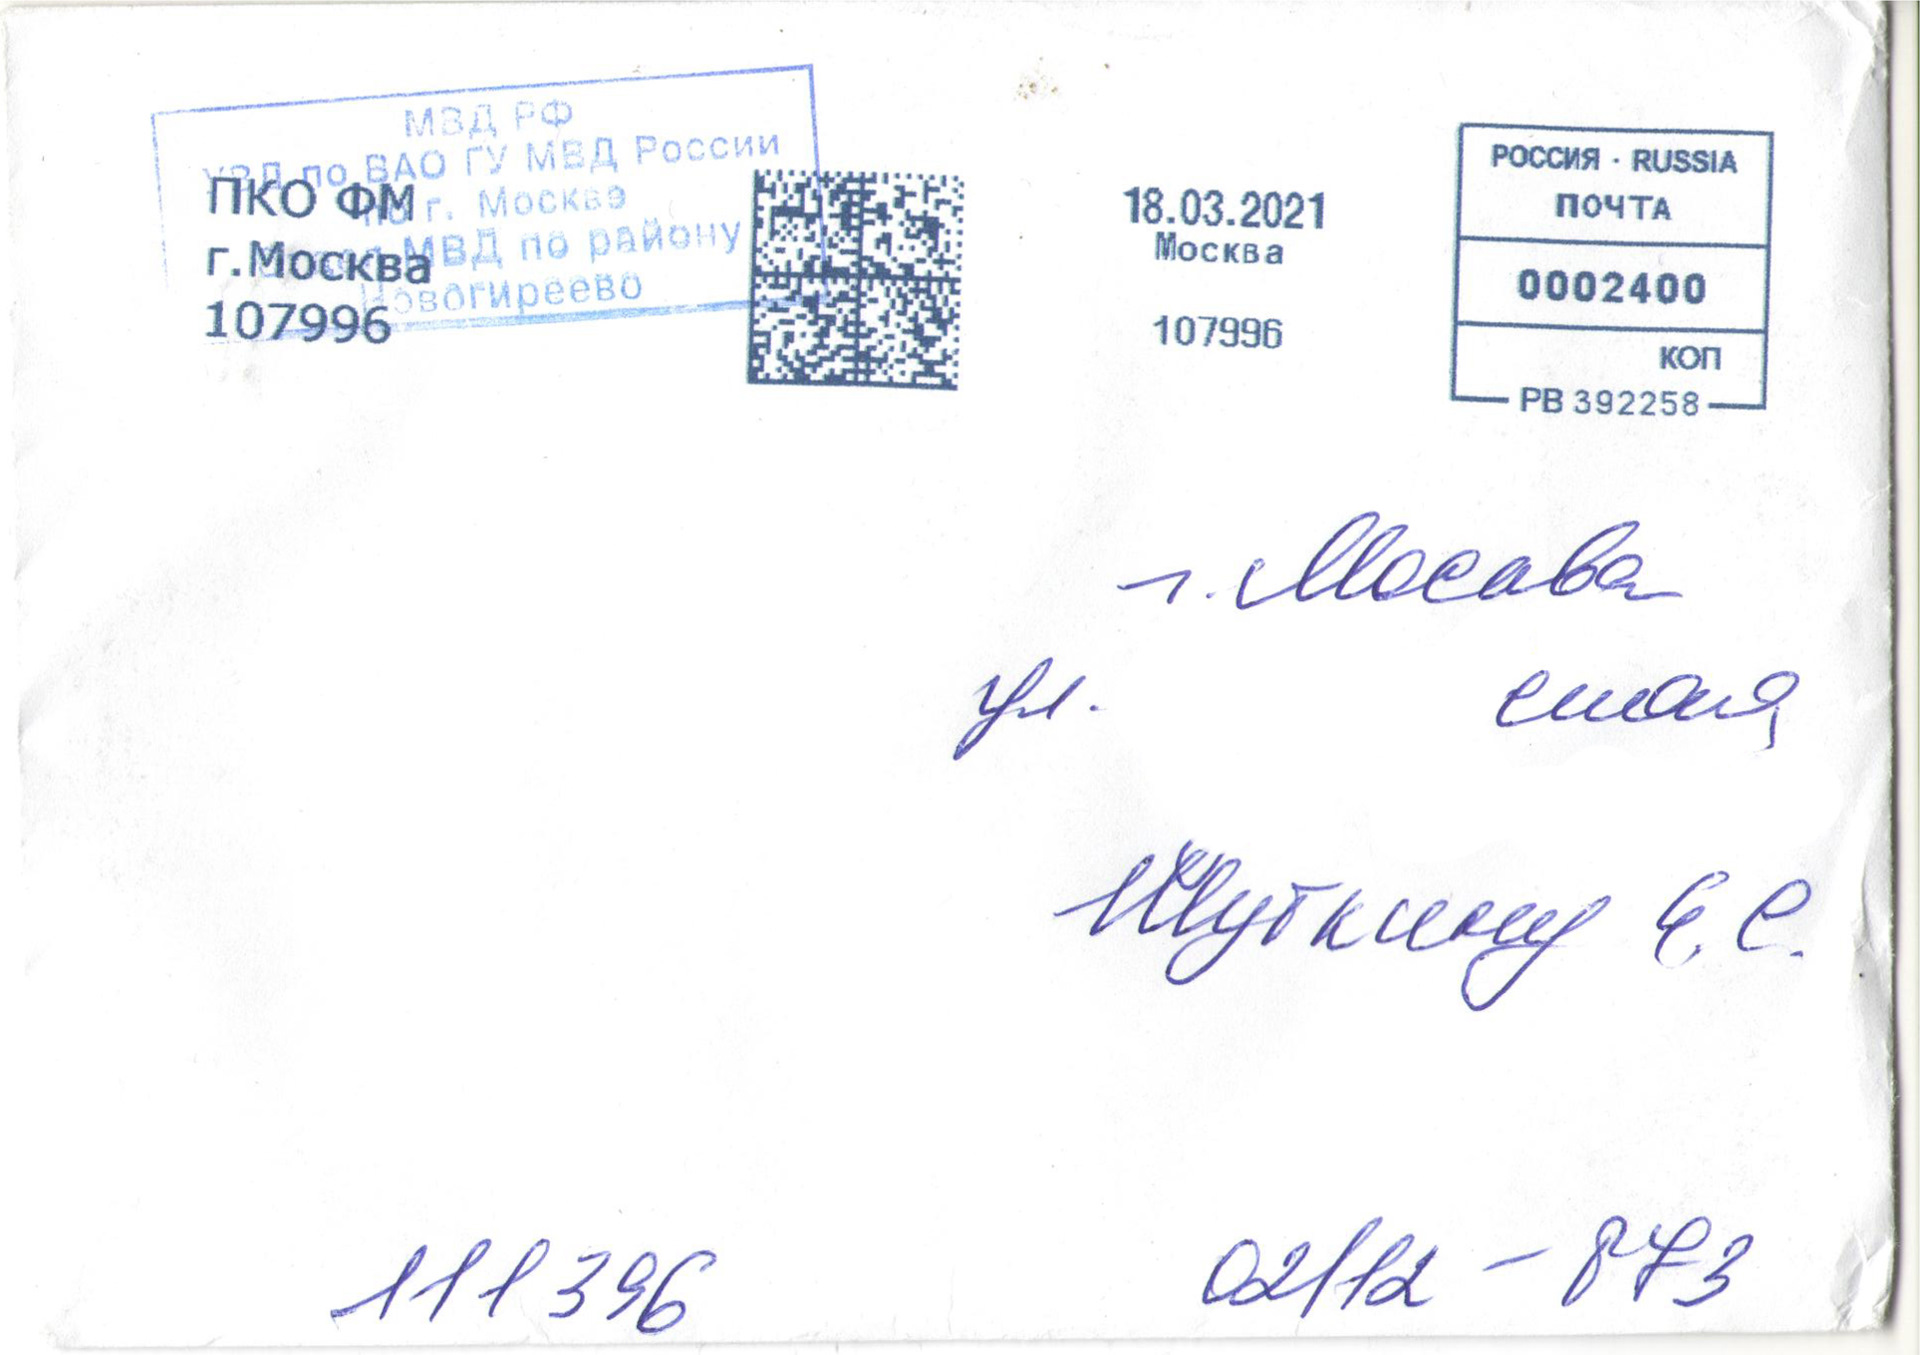 МВД РФ
УВД по ВАО ГУ МВД России
по г. Москве
МВД по району
Новогиреево
ПКО ФМ
г.Москва
107996
18.03.2021
Москва
107996
РОССИЯ · RUSSIA
ПОЧТА
0002400
КОП
РВ 392258
г. Москва
ул.
Шуткину Е. С.
111396
02/12 - 873